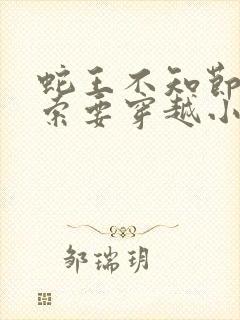 蛇王不知节
索要穿越小
邹瑞玥